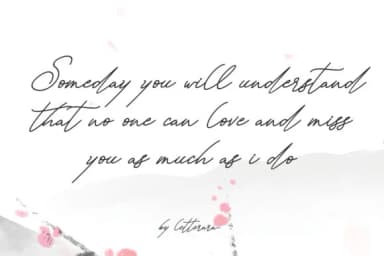 Someday you will understand
that no one can love and miss
you as much as i do
by Letterara